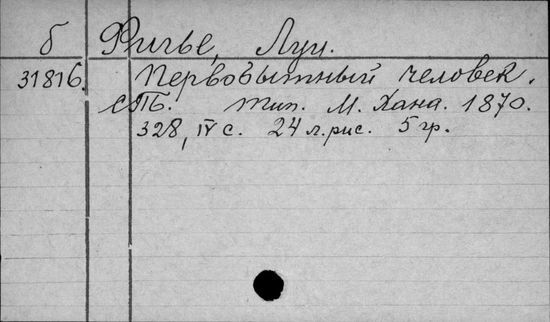 б Фигье, Луи.
31816. Первобытный человек.
СПб. Тип. М. Хана. 1870.
328, IV с. 24 л. рис. 5 гр.